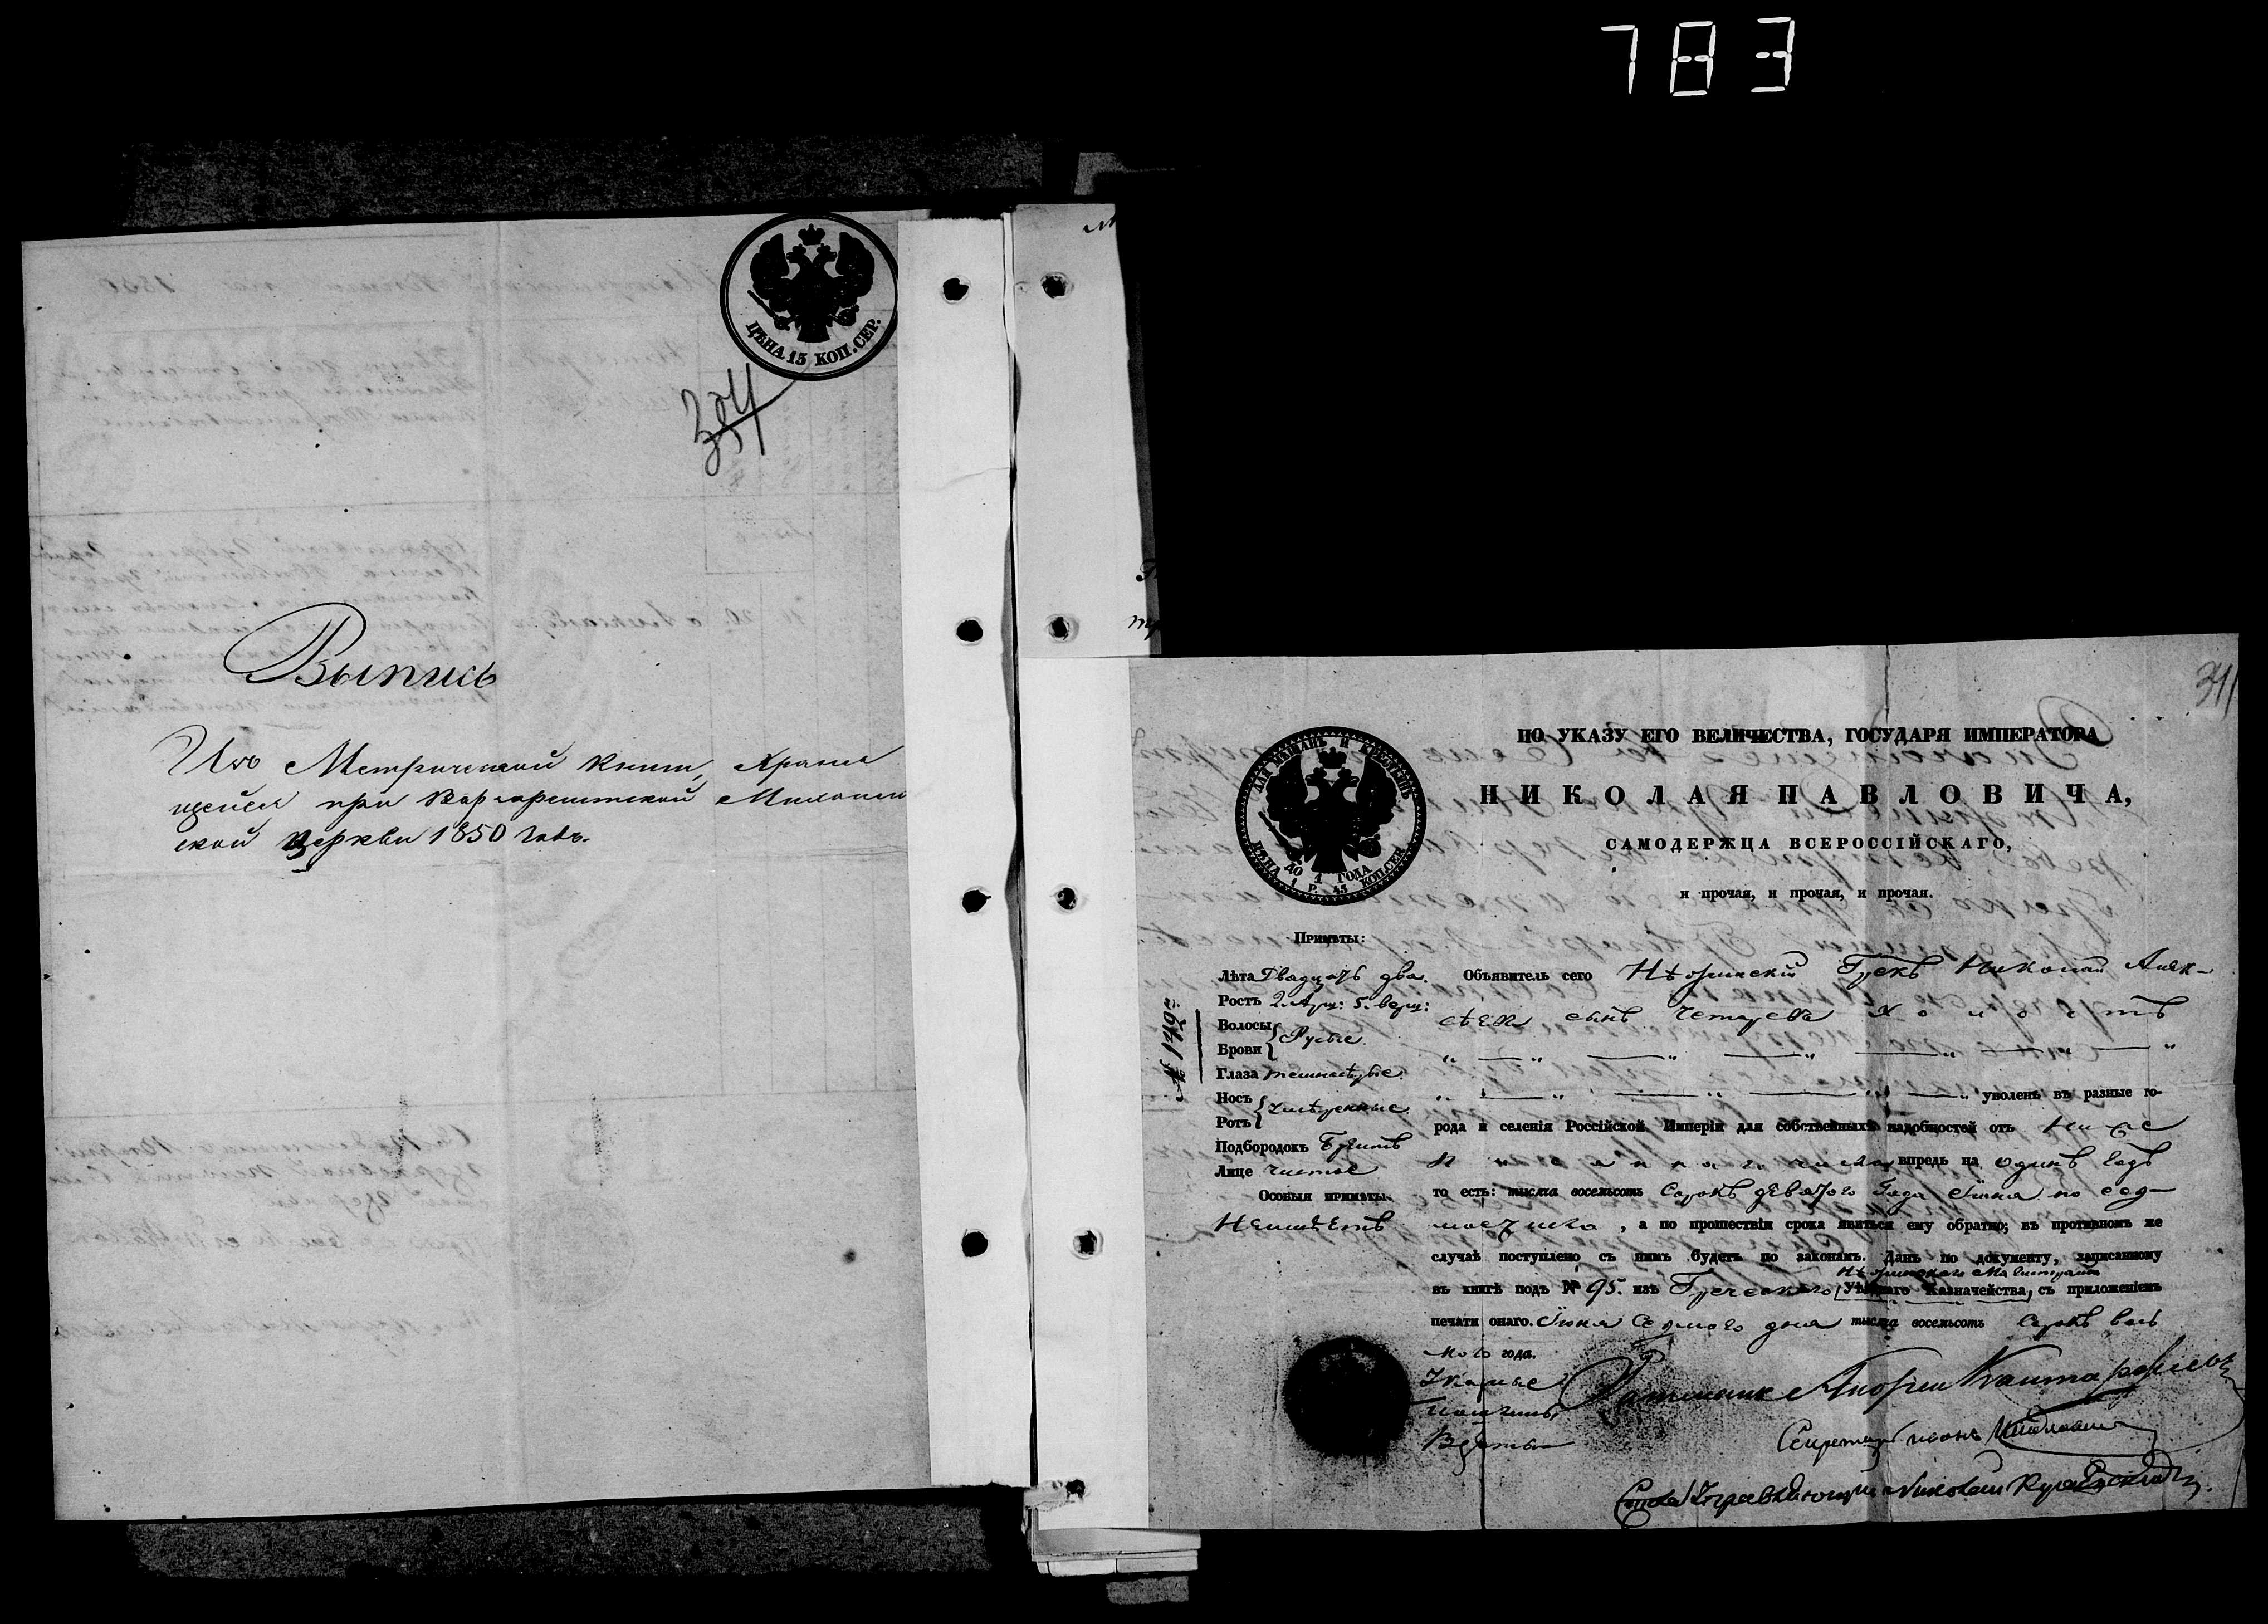 783
ЦѢНА 15 КОП. СЕР.
Выпись
Изъ Метрической книги, Храня
щейся при Варзарештской Михайлов
ской Церкви 1850 года.
341
ПО УКАЗУ ЕГО ВЕЛИЧЕСТВА, ГОСУДАРЯ ИМПЕРАТОРА
НИКОЛАЯ ПАВЛОВИЧА,
САМОДЕРЖЦА ВСЕРОССІЙСКАГО,
и прочая, и прочая, и прочая.
ДЛЯ МѢЩАНЪ И КРЕСТЬЯНЪ
ДО 1 ГОДА
ЦѢНА 1 Р. 45 КОП. СЕР.
Примѣты:
Лѣта Двадцать два.
Ростъ 2. Арш: 5. верш:
Волосы
Брови
Русые
Глаза темносѣрые
Носъ
Ротъ
умѣренные
Подбородокъ Бритъ
Лице чистое
Особыя примѣты.
Неимѣетъ
№ 1749
Объявитель сего Нѣжинскій Грекъ Николай Алек-
сѣевъ сынъ
уволенъ въ разные го-
рода и селенія Россійской Имперіи для собственныхъ надобностей отъ ниже
писаннаго числа впредь на одинъ годъ
то есть: тысяча восемьсотъ Сорокъ девятого Года Іюня по сед-
мое число, а по прошествіи срока явиться ему обратно; въ противномъ же
случаѣ поступлено съ нимъ будетъ по законамъ. Данъ по документу, записанному
Нѣжинскаго Магистрата
въ книгѣ подъ № 95. изъ Греческаго Уѣзднаго Казначейства, съ приложеніемъ
печати онаго. Іюня Седмого дня тысяча восемьсотъ Сорокъ вось
мого года.
Укарные
пошлины
Взяты
Ратманъ Андрей
Секретарь
Николай